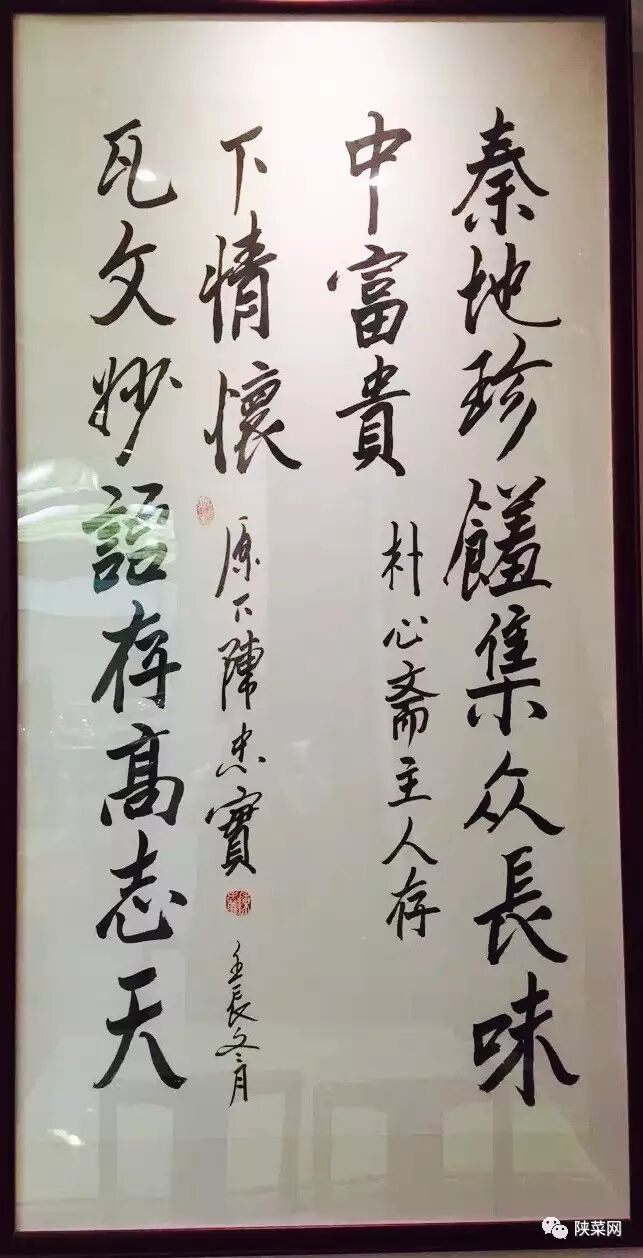 秦地珍饈集众長味
中富貴
朴心斋主人存
瓦文妙語存高志天
下情懷
原下陳忠實
壬辰冬月
陕菜网